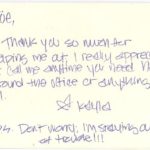 Thank you so much for
helping me out. I really apprec
call me anytime you need h
around the office or anything
Kayla
P.S. Don't worry, I'm staying out
of trouble!!!